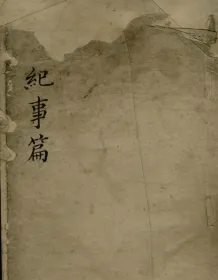 紀事篇